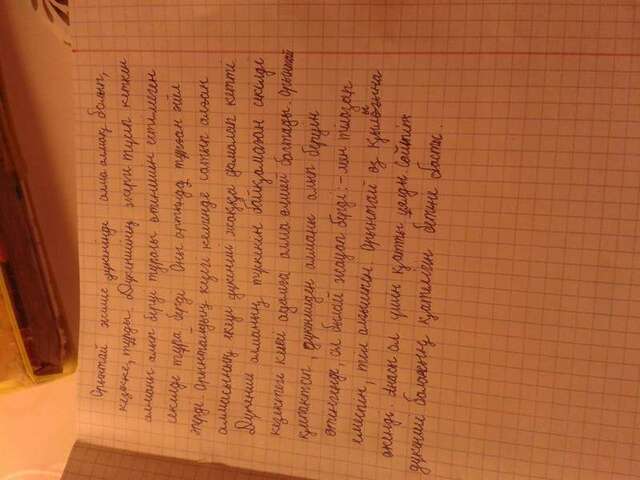 Орынтай жеміс дүкенінде алма алмақ болып,
кезекке тұрды. Дүкеншінің жерге түсіп кеткен
алманы алып беруі туралы өтінішін естімеген
секілді тұра берді. Оны артында тұрған әйел
берді. Орынтайдың кезегі келгенде сатып алған
алмасының екеуі дүкенші жаққа домалап кетті
Дүкенші алманың түскенін байқамаған секілді
кезектегі келесі адамға алма өлшей бастады. Орынтай
қипақтап, дүкеншіден алманы алып беруін
өтінгенде, ол былай жауап берді: - мен тілазар
емеспін, тіл алғышпін. Орынтай өз қылығына
өкінді. Анасы ол үшін қатты ұялды. Сөйтіп
дүкенші баланың қателігін бетіне басты.